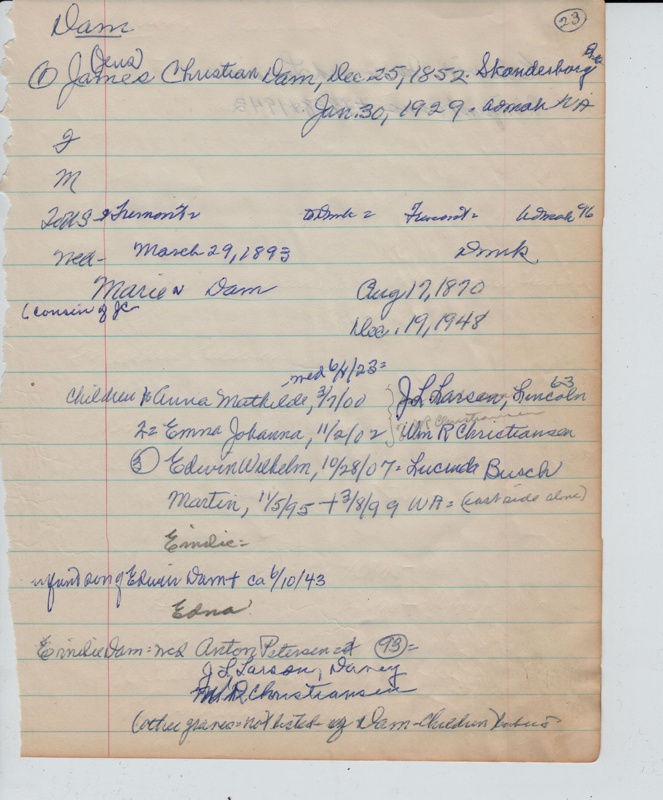 Dam
23
(Jens)
① James Christian Dam, Dec 25, 1852. Skanderborg
Jan. 30, 1929. Admah NA
F
M
Fremont = Dmk = Fremont = Admah 96
med - March 29, 1893 Dmk.
Marie N Dam Aug 17, 1870
(cousin of JC Dec. 19, 1948
med 6/4/23 =
Children 1= Anna Mathilde, 3/7/00 J L Larson, Lincoln 63
Wm R Christiansen
2= Emma Johanna, 11/2/02 Wm R Christiansen
③ Edwin Wilhelm, 10/28/07 = Lucinda Busch
Martin, 11/5/95 + 3/8/99 WA = (east side alone)
Emilie =
infant son of Edwin Dam + ca 6/10/43
Edna
Emilie Dam = med Anton Petersen 93 =
J L Larson, Davey
Wm R Christiansen
(other graves = not listed - of Dam - Children)